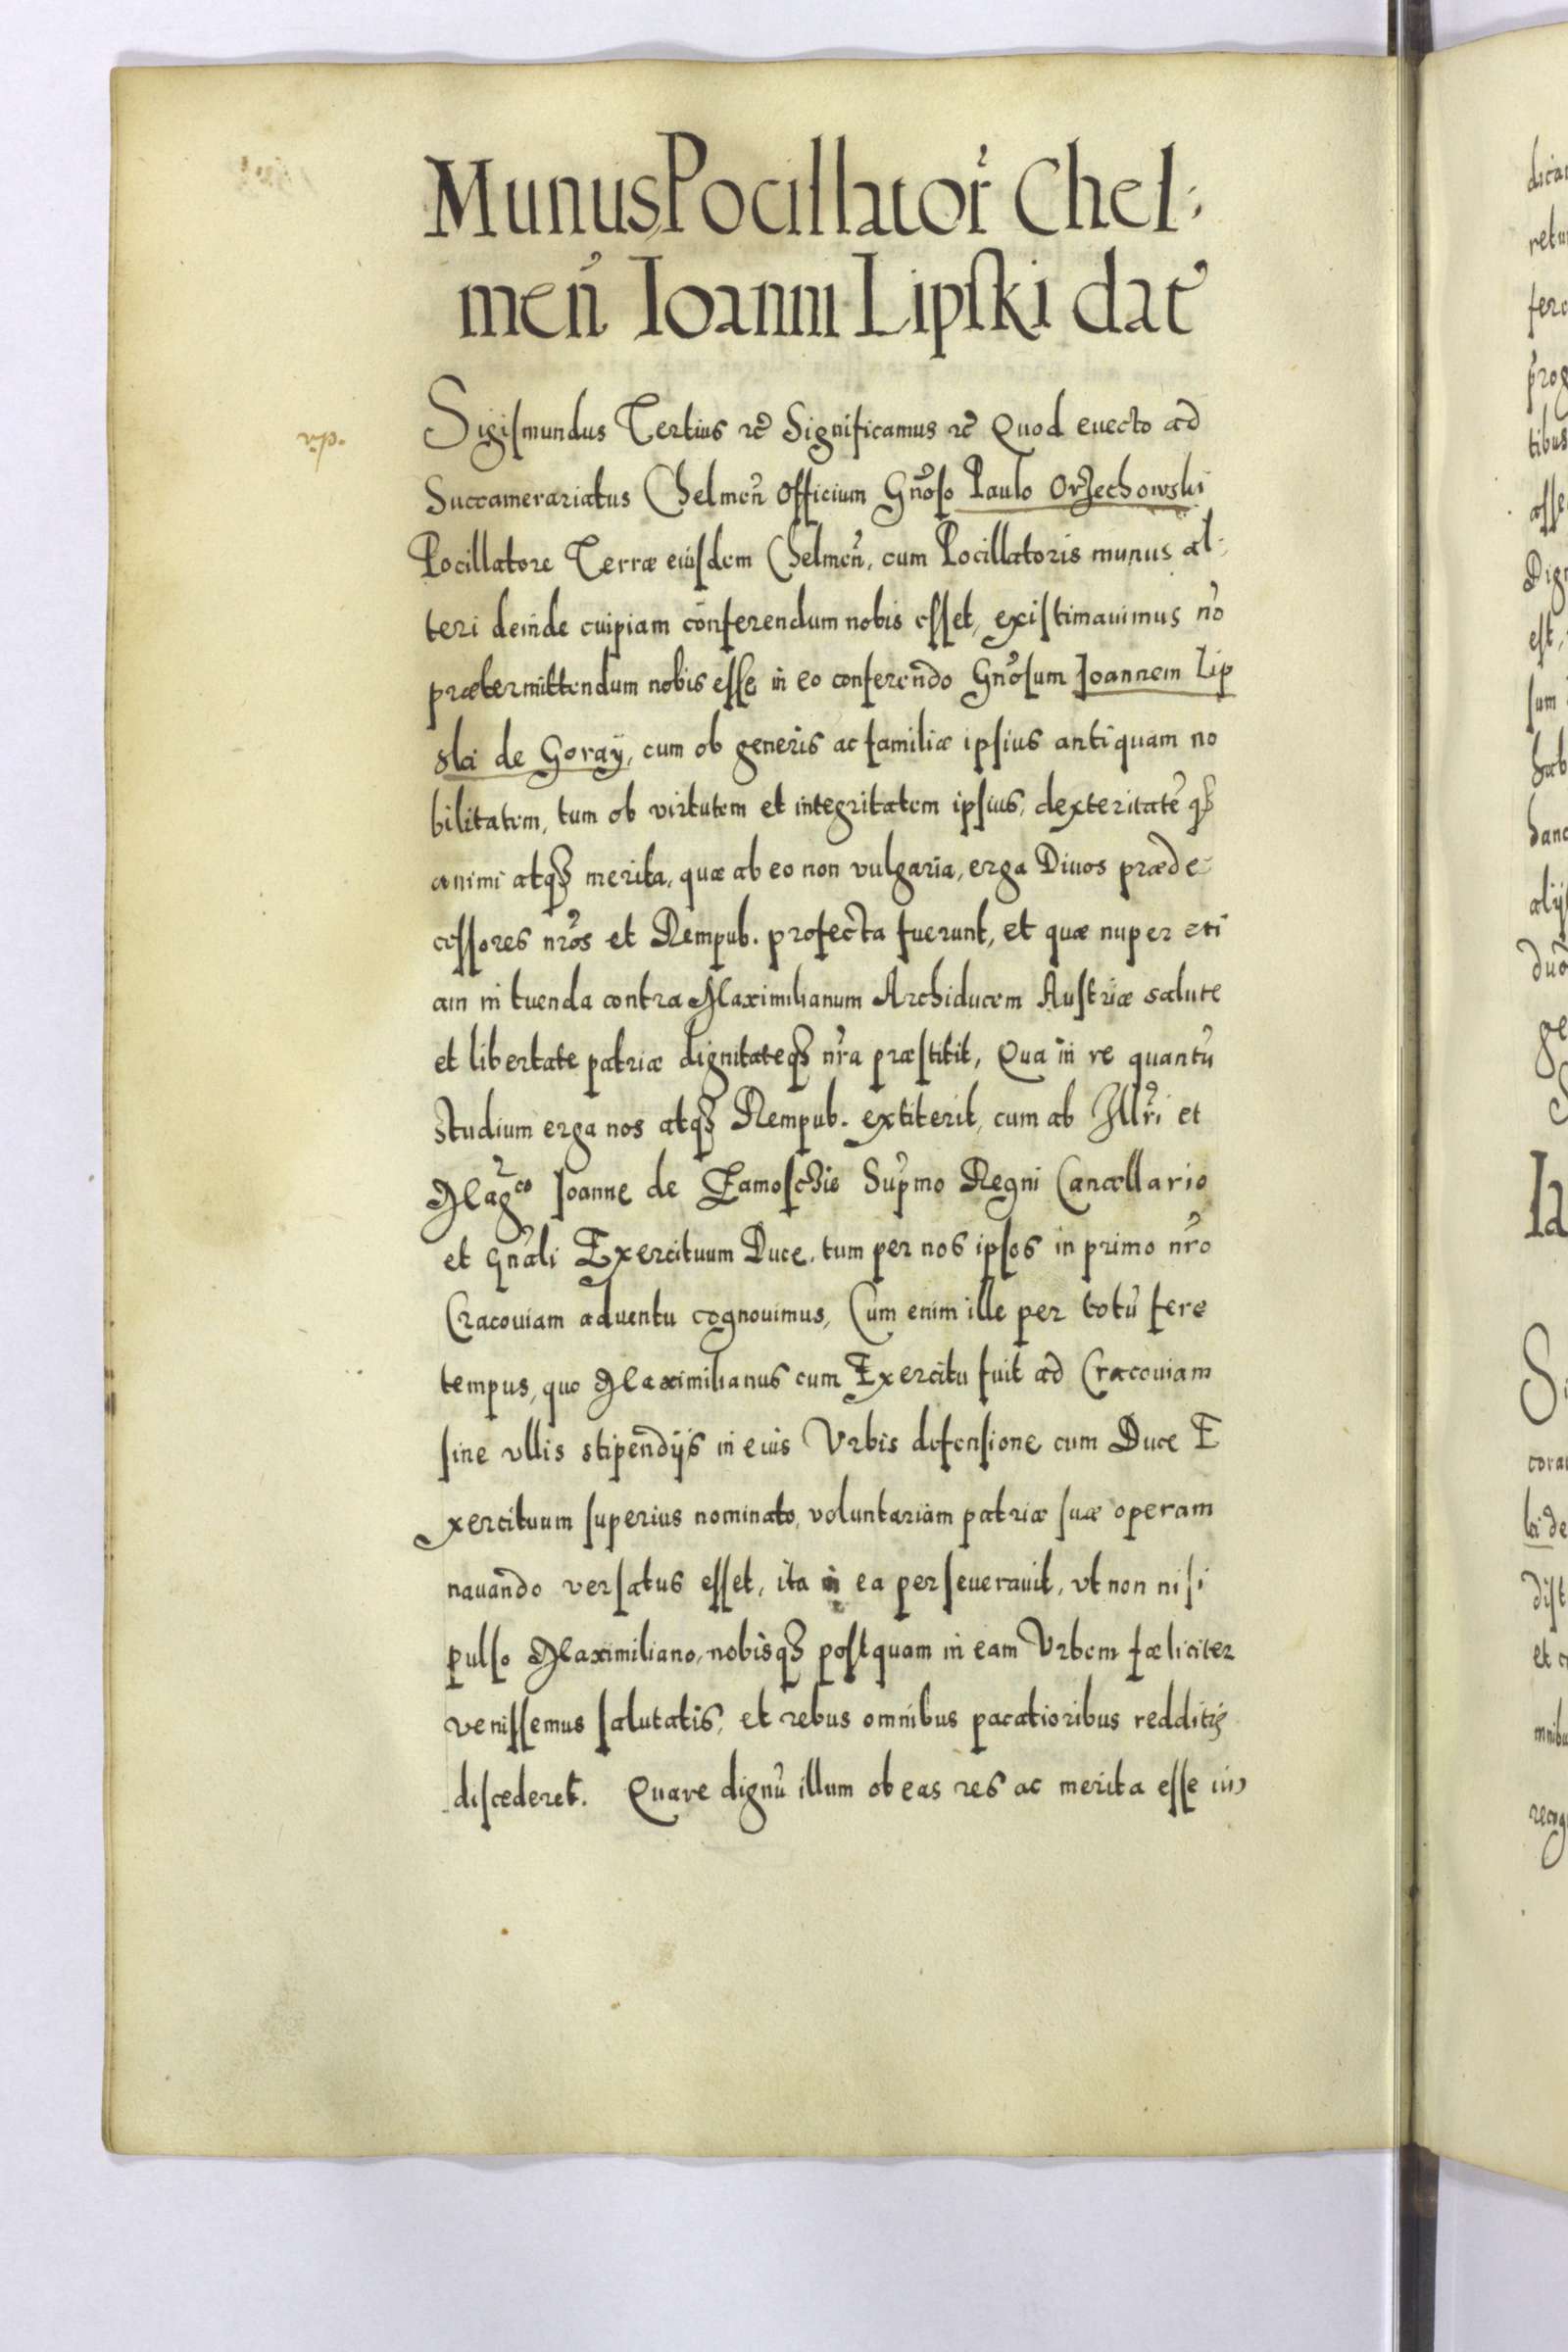 Munus Pocillator̃ Chel:
meñ Ioanni Lipſki dat̃
vp.
Sigiſmundus Tertius ꝛc̃ Significamus ꝛc̃ Quod euecto ad
Succamerariatus Chelmeñ Officium Gñoſo Paulo Orzechowski
Pocillatore Terræ eiuſdem Chelmeñ, cum Pocillatoris munus al:
teri deinde cuipiam conferendum nobis eſſet, exiſtimauimus nõ
prætermittendum nobis eſſe in eo conferendo Gñoſum Joannem Lip
ski de Goraÿ, cum ob generis ac familiæ ipſius antiquam no
bilitatem, tum ob virtutem et integritatem ipſius, dexteritatẽ qꝫ
animi atqꝫ merita, quæ ab eo non vulgaria, erga Diuos præde-
ceſſores nr̃os et Rempub. profecta fuerunt, et quæ nuper eti
am in tuenda contra Maximilianum Archiducem Auſtriæ salute
et libertate patriæ dignitateqꝫ nr̃a præſtitit, Qua in re quantũ
studium erga nos atqꝫ Rempub. extiterit, cum ab Illr̃i et
Mag̃co Joanne de Zamoſchie Sup̃mo Regni Cancellario
et Gnãli Exercituum Duce, tum per nos ipſos in primo nr̃o
Cracouiam aduentu cognouimus, Cum enim ille per totũ fere
tempus, quo Maximilianus cum Exercitu fuit ad Cracouiam
ſine vllis stipendijs in eius Vrbis defenſione cum Duce E
xercituum ſuperius nominato, voluntariam patriæ ſuæ operam
nauando verſatus eſſet, ita in ea perſeuerauit, vt non niſi
pulſo Maximiliano, nobisqꝫ poſtquam in eam Vrbem fœliciter
veniſſemus ſalutatis, et rebus omnibus pacatioribus redditis
diſcederet. Quare dignũ illum ob eas res ac merita eſſe iu